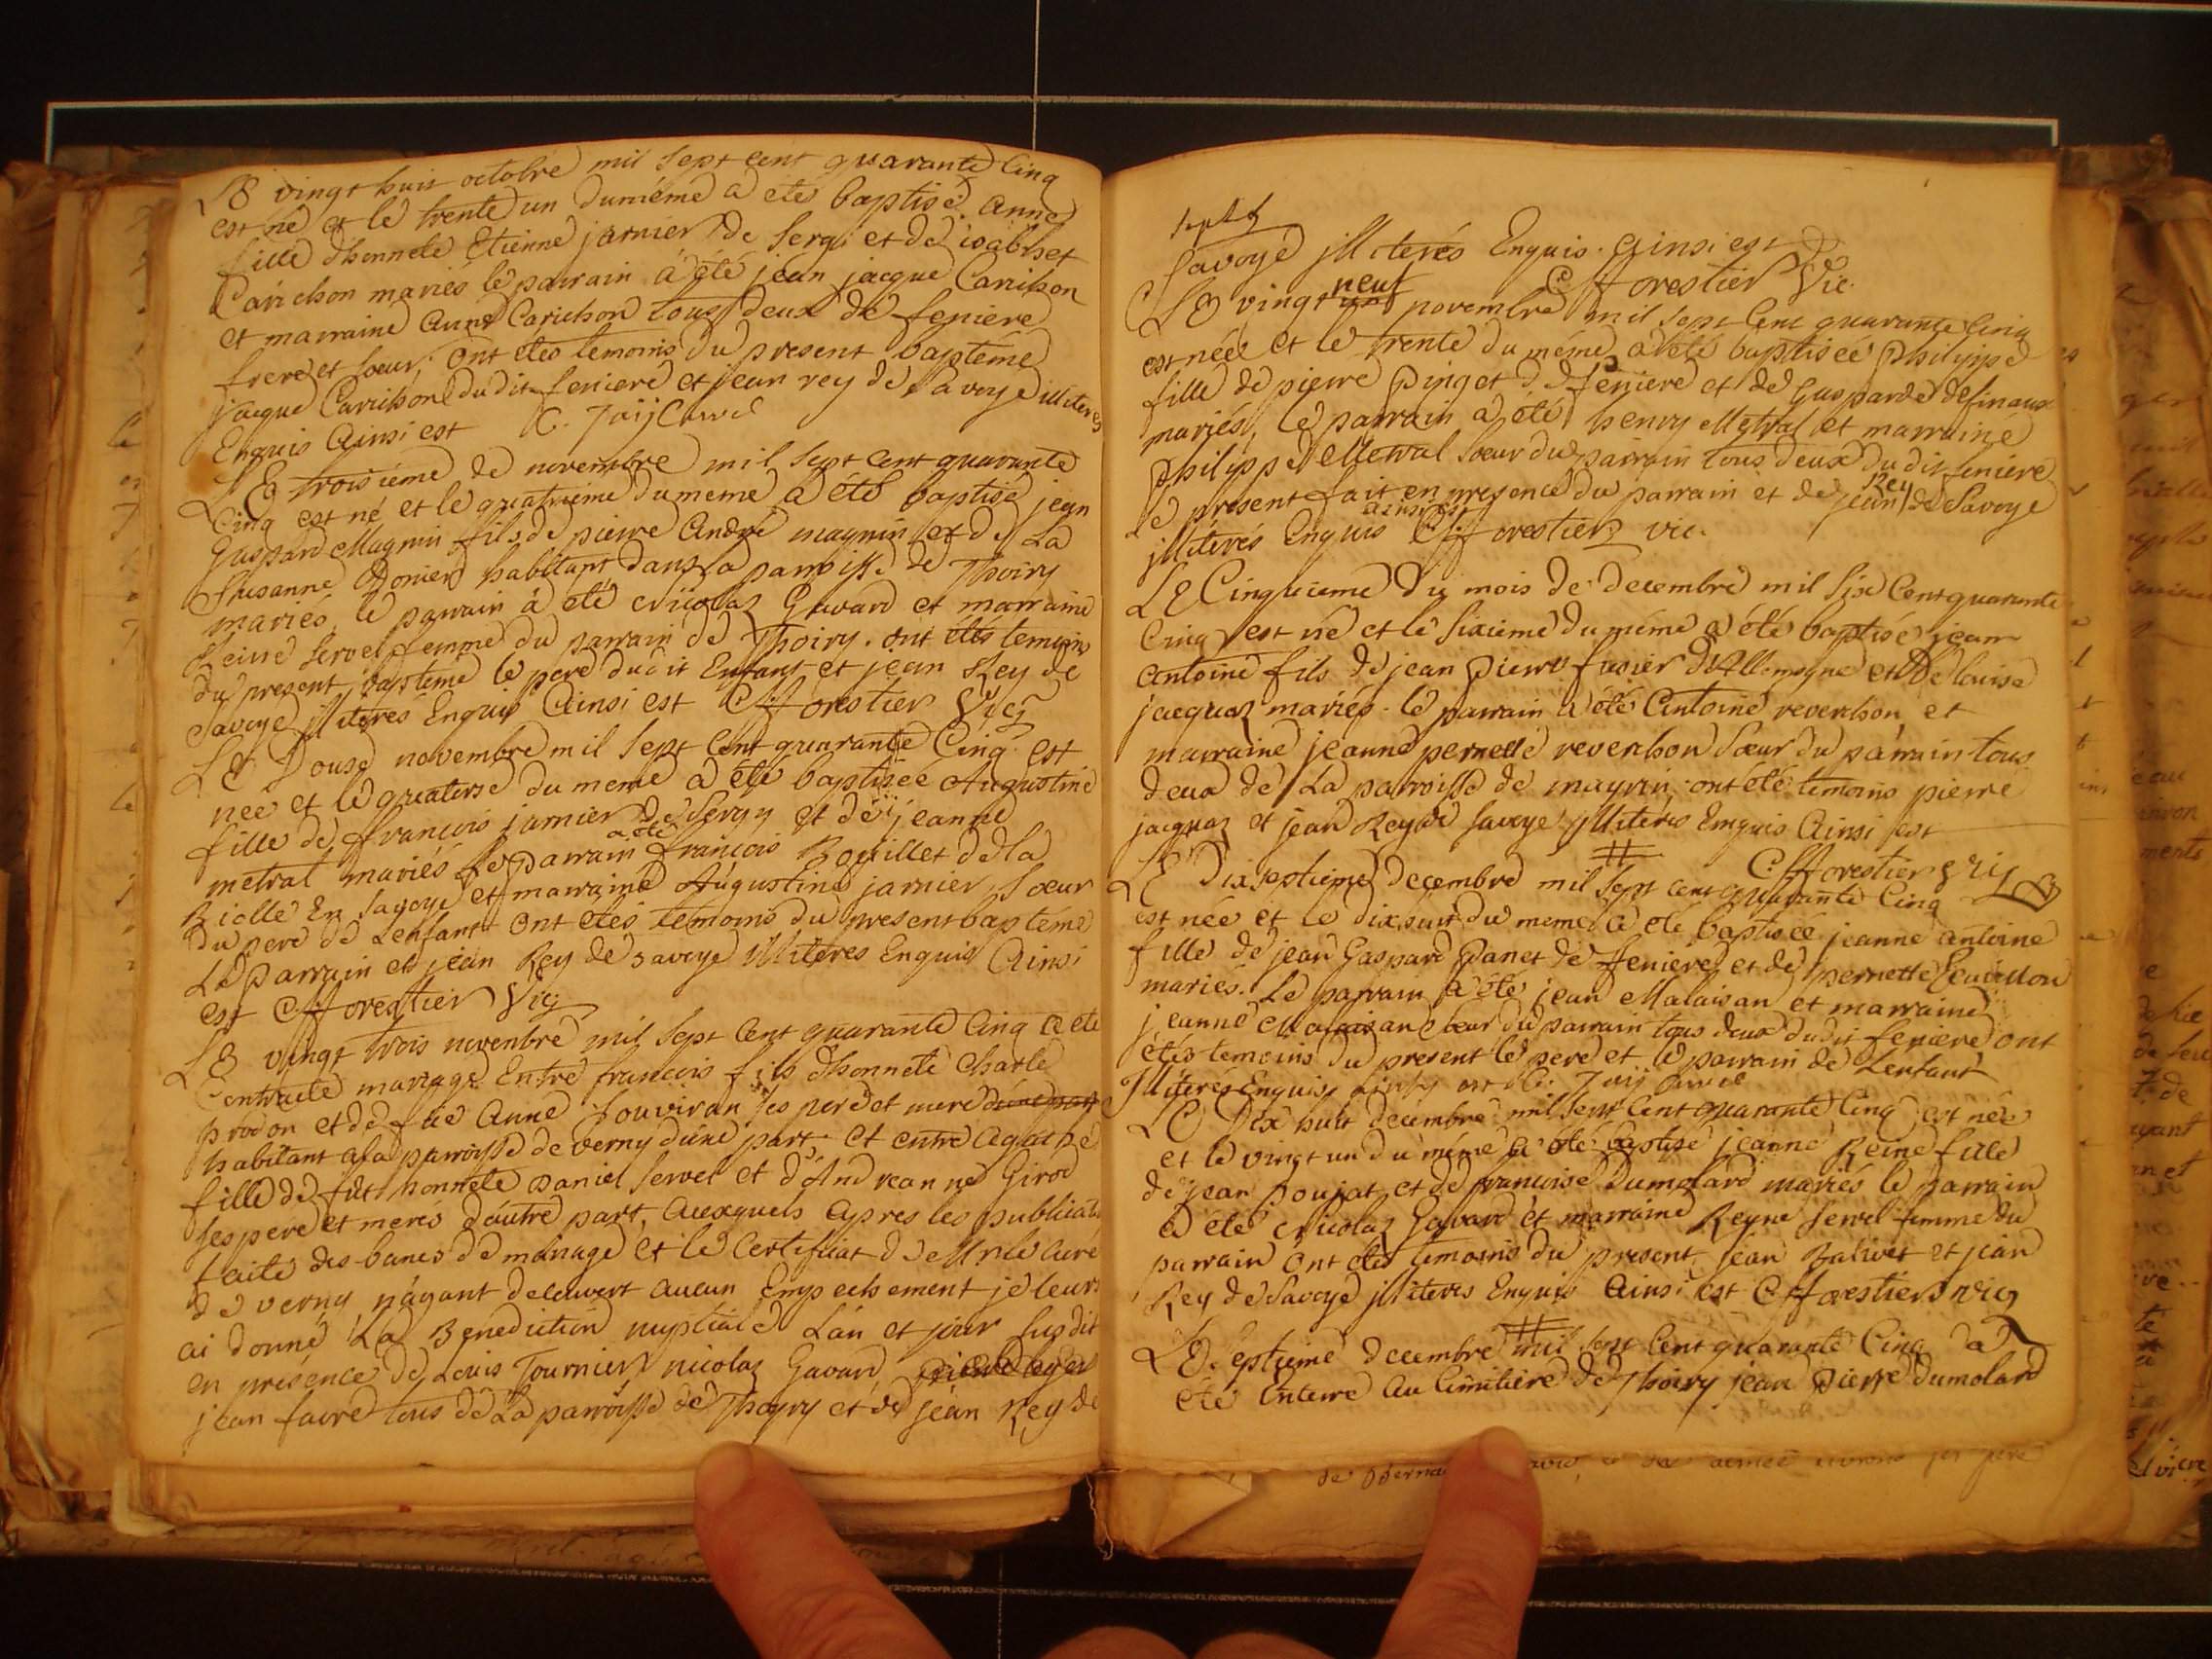 LE vingt huit octobre mil sept cent quarante Cinq
est né et le trente un dumeme a eté baptisé Anne
fille d'honnete Etienne jarnier de Sergi et de isablet
Carichon mariés le parrain à été jean jacque Carichon
et marraine Anne Carichon tous deux de feniere
frere et soeur; Ont etés temoins du present bapteme
jacque Carichon dudit feniere et jean rey de Savoye illiteres
Enquis Ainsi est
LE troisieme de novembre mil sept cent quarante
Cinq est né et le quatrieme dumeme a été baptisé jean
Gaspard Magnin fils de pierre André magnin et de La
Susanne habitant dans la parroisse de Thoiry
mariés, le parrain à eté Nicolaz Gavard et marraine
Reine Servel femme du parrain de Thoiry. ont étés temoins
du present bapteme le pere dudit Enfant et jean Rey de
Savoye illiterés Enquis Ainsi est C ff orestier Vic
LE Douze novembre mil sept cent quarante Cinq est
née et le quatorze du meme a été baptisée Augustine
fille de francois jarnier de Sergy et de jeanne
metral mariés Le parrain a eté francois Bouillet de la
Biolle En Savoye et marraine Augustine jarnier soeur
du pere de Lenfant Ont etés temoins du present baptéme
Le parrain et jean Rey de savoye illiteres Enquis Ainsi
est C ff orestier Vic
LE vingt trois novembre mil sept Cent quarante Cinq a eté
Contracté mariage Entre francois fils dhonnete Charle
prodon et de fue Anne Souviran ses pere et mere dune part
habitant a la parroisse de verny d'une part et entre Agathe
fille de fut honnete Daniel Servel et d'Andreanne Girod
ses pere et meres d'autre part, auxquels apres les publicat
faite des bancs de mariage et le Certificat de Mr le Curé
de verny n'ayant decouvert aucun Empechement je leurs
ai donné La Benediction nuptiale Lan et jour susdit
en présence de Louis Tournier nicolaz Gavard
jean favre tous de La parroisse de Thoyry et de jean Rey de
Savoye illiterés Enquis. Ainsi est
C ff orestier Vic.
LE vingt neuf novembre mil sept Cent quarante Cinq
est née et le trente du méme a été baptisée Philippe
fille de pierre Pinget de feniere et de Gasparde definaux
mariés, le parrain a été henry Metral et marraine
Philippe Metral soeur du parrain tous deux du dit feniere
le present fait en presence du parrain et de jean Rey de Savoye
illiterés Enquis ainsi est C ff orestier vic.
LE Cinquieme du mois de decembre mil six Cent quarante
Cinq est né et le sixieme du méme a été baptisé jean
antoine fils de jean pierre fusier d'Allemogne et De louise
jacquaz mariés. le parrain a été Antoine reverchon et
marraine jeanne pernette reverchon soeur du parrain tous
deux de La parroisse de mayrin, ont été temoins pierre
jacquaz et jean Rey de Savoye illiterés Enquis Ainsi est
C ff orestier vic
LE Dixseptieme decembre mil sept cent quarante Cinq
est née et le dixhuit du meme a eté baptisée jeanne antoine
fille de jean Gaspard Panet de feniere et de pernette
mariés. Le parrain a été jean Malaisan et marraine
jeanne Malaisan soeur du parrain tous deux dudit feniere ont
etés temoins du present le pere et le parrain de Lenfant
illiterés Enquis ainsy est
LE Dix huit decembre mil sept Cent quarante Cinq est née
et le vingt un du méme a été baptisé jeanne Reine fille
de jean poujat et de francoise Dumolard mariés le parrain
a été Nicolaz Gavard et marraine Reyne Servel femme du
parrain Ont etés temoins du present, jean Balivet et jean
Rey de Savoye illiteres Enquis Ainsi est C ff orestier vic
LE septieme decembre mil sept Cent quarante Cinq a
eté Enterré au Cimitiere de Thoiry jean Pierre Dumolard